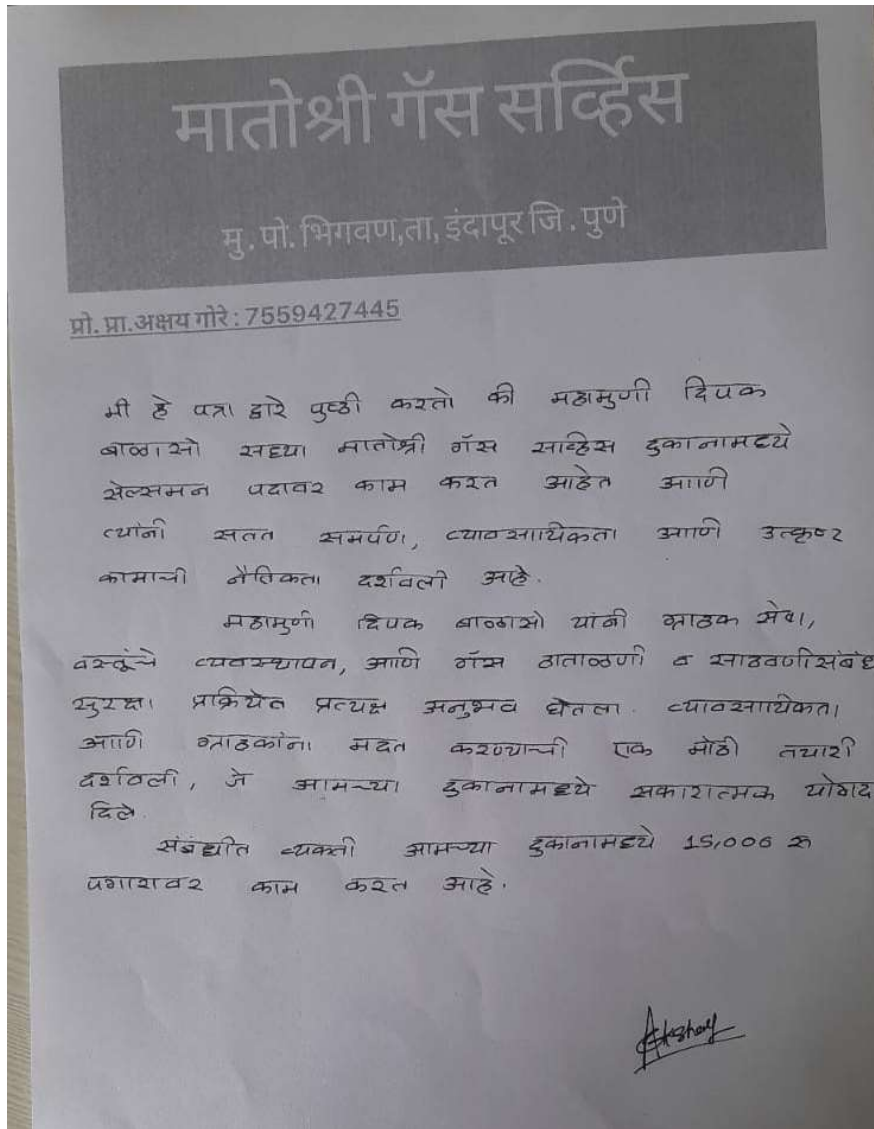 मातोश्री गॅस सर्व्हिस
मु. पो. भिगवण,ता, इंदापूर जि. पुणे
प्रो. प्रा.अक्षय गोरे : 7559427445
मी हे पत्रा द्वारे पुष्ठी करतो की महामुणी दिपक
बाळासो सध्या मातोश्री गॅस सार्व्हिस दुकानामध्ये
सेल्समन पदावर काम करत आहेत आणि
त्यांनी सतत समर्पण, व्यावसायिकता आणि उत्कृष्ट
कामाची नैतिकता दर्शवली आहे.
महामुणी दिपक बाळासो यांनी ग्राहक सेवा,
वस्तूंचे व्यवस्थापन, आणि गॅस हाताळणी व साठवणीसंबंध
सुरक्षा प्रक्रियेत प्रत्यक्ष अनुभव घेतला. व्यावसायिकता
आणि ग्राहकांना मदत करण्याची एक मोठी तयारी
दर्शवली, जे आमच्या दुकानामध्ये सकारात्मक योगद
दिले.
संबंधीत व्यक्ती आमच्या दुकानामध्ये 15,000 रु
पगारावर काम करत आहे.
Akshay